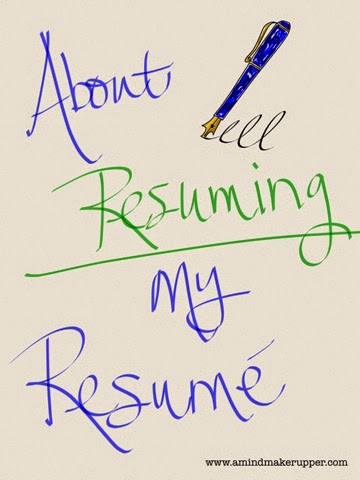 About
Resuming
My
Resumé
www.amindmakerupper.com